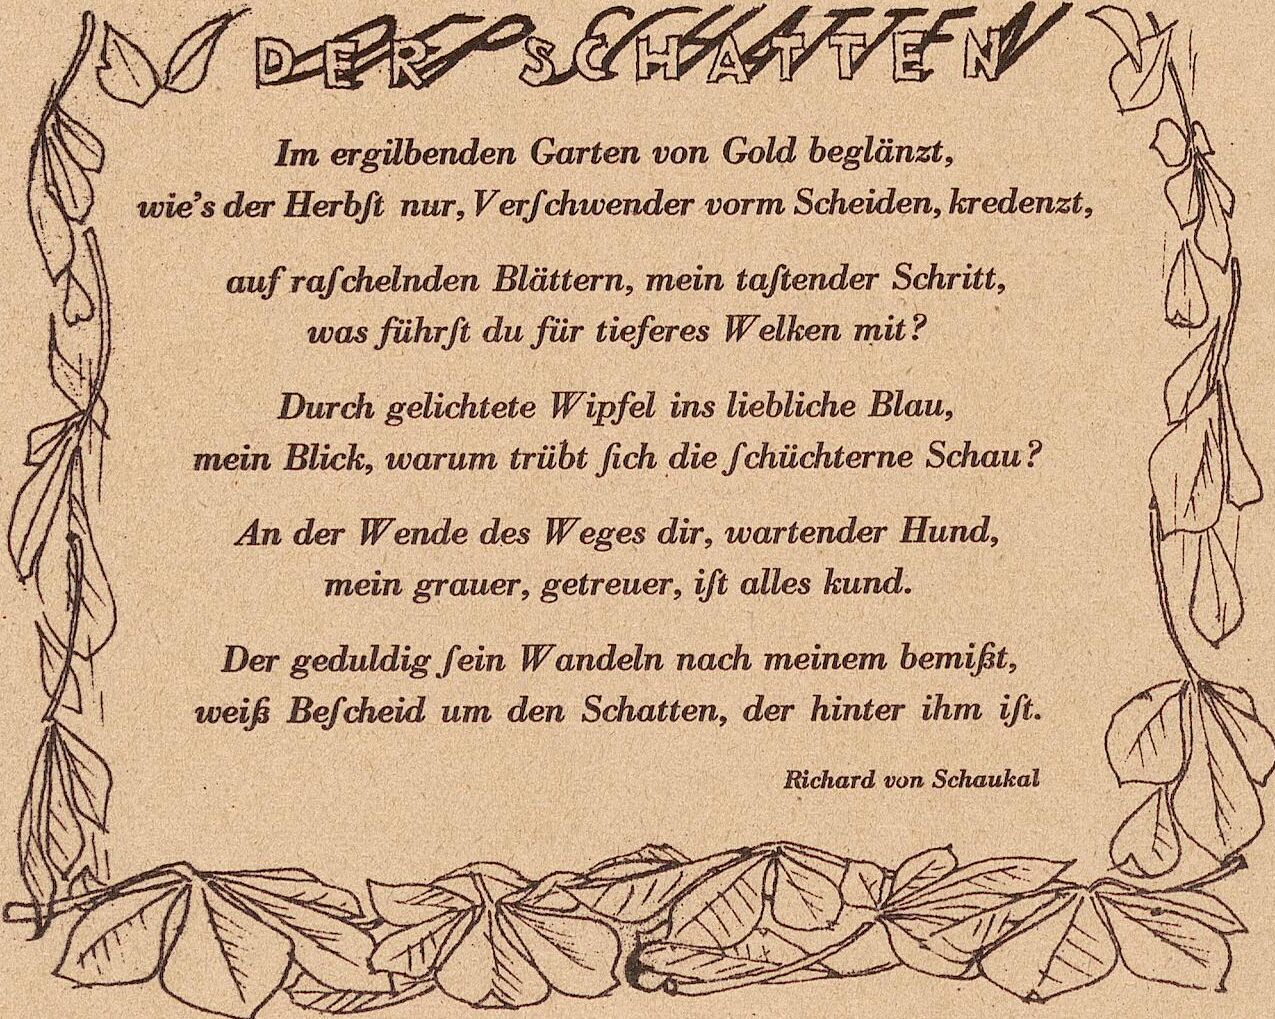 DER SCHATTEN
Im ergilbenden Garten von Gold beglänzt,
wie's der Herbſt nur, Verſchwender vorm Scheiden, kredenzt,
auf raſchelnden Blättern, mein taſtender Schritt,
was führſt du für tieferes Welken mit?
Durch gelichtete Wipfel ins liebliche Blau,
mein Blick, warum trübt ſich die ſchüchterne Schau?
An der Wende des Weges dir, wartender Hund,
mein grauer, getreuer, iſt alles kund.
Der geduldig ſein Wandeln nach meinem bemißt,
weiß Beſcheid um den Schatten, der hinter ihm iſt.
Richard von Schaukal